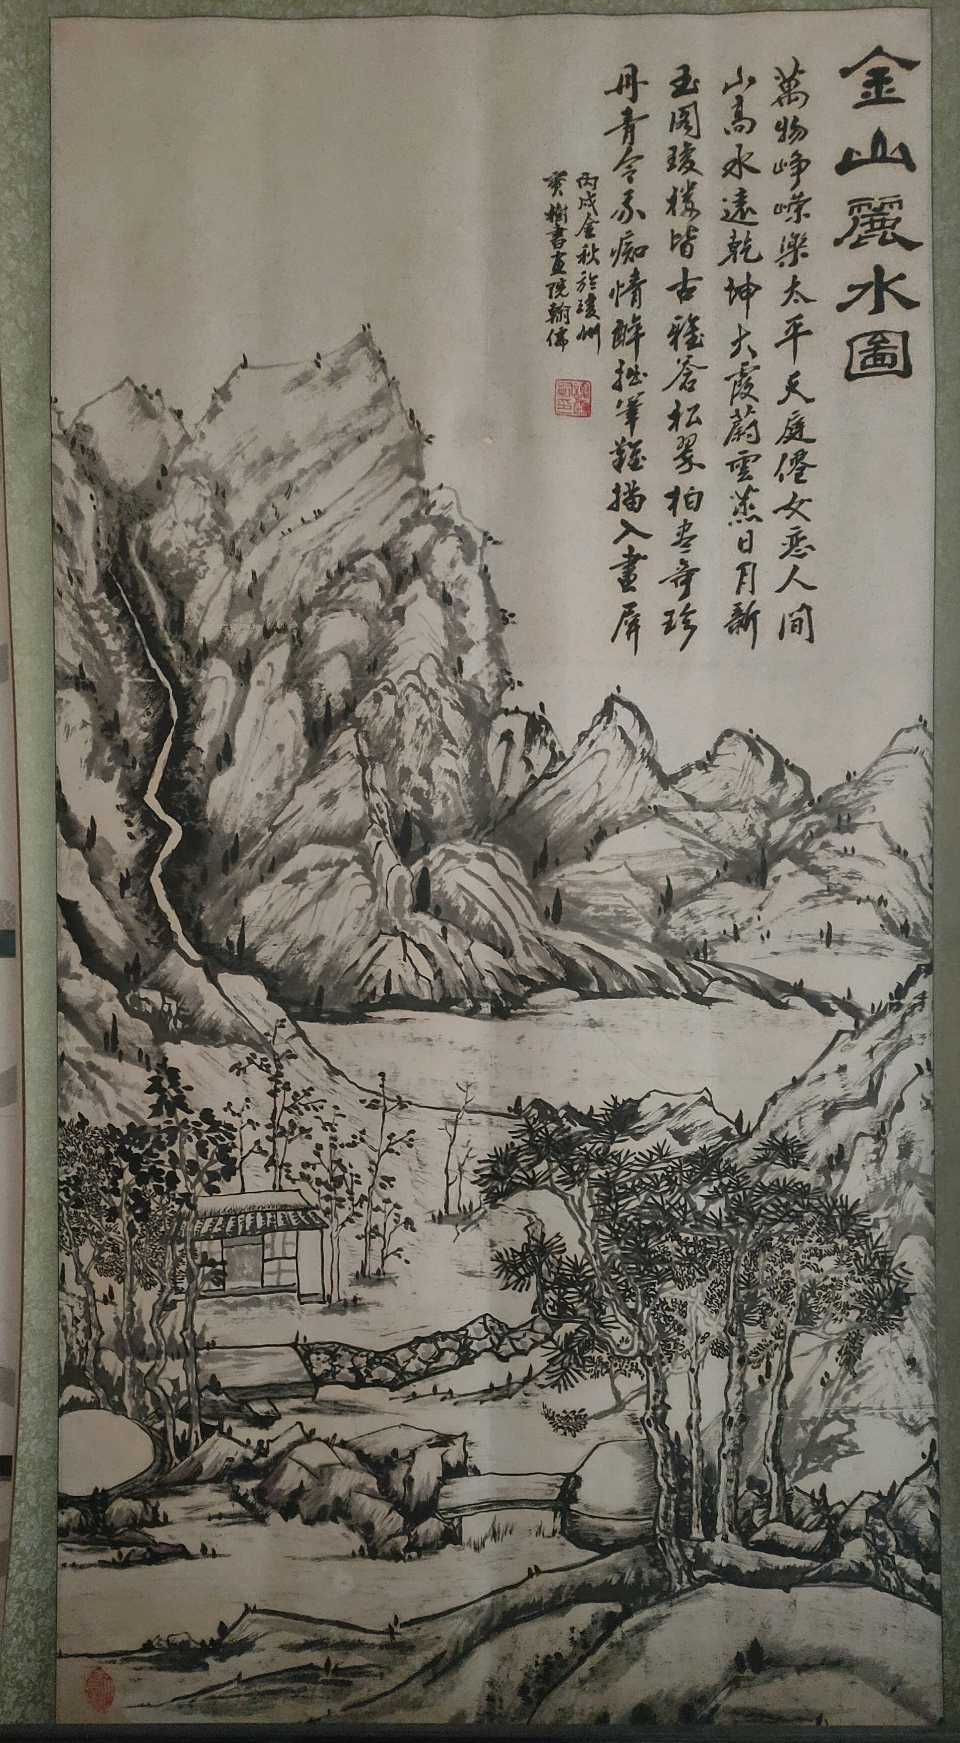 金山麗水圖
萬物崢嶸樂太平天庭僊女恋人間
山高水遠乾坤大霞蔚雲蒸日月新
玉閣瓊楼皆古雅蒼松翠柏尽奇珍
丹青令我痴情醉拙筆難描入畫屏
丙戌金秋於瓊州
寳樹書画院翰儒